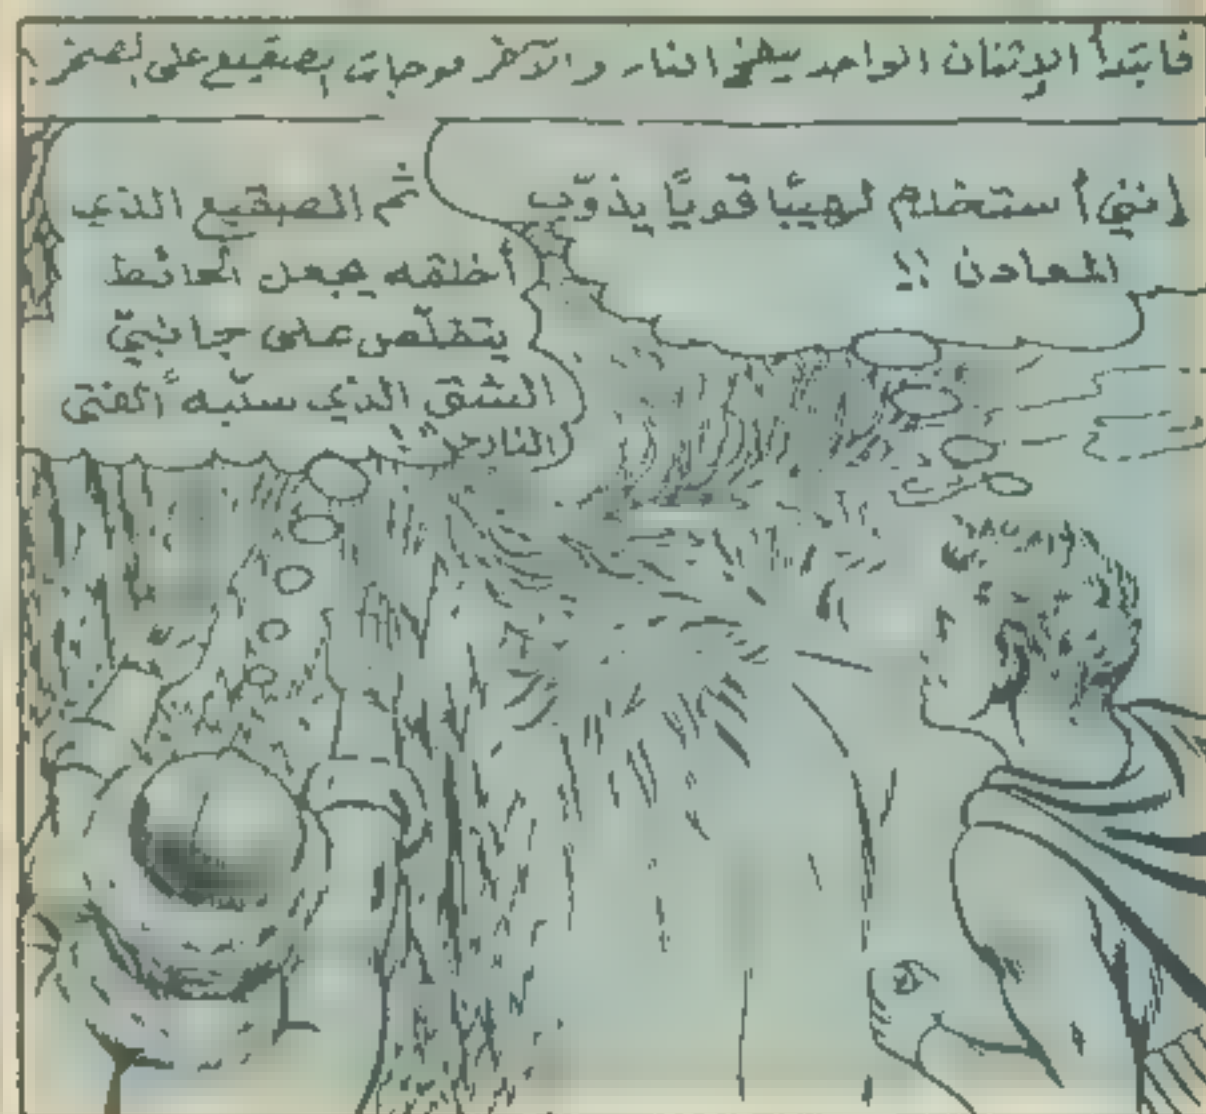 فابتدأ الإثنان الواحد ينفخ النار والآخر موجات الصقيع على الصخر
إنني أستخدم لهيبًا قويًا يذوّب
المعادن !!
ثم الصقيع الذي
أخلقه يجعل الحائط
يتقلّص على جانبيّ
الشق الذي سبّبه ألفتى
الناري !!